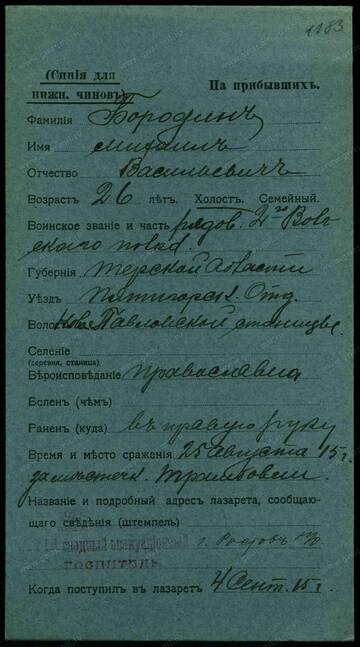 1183
(Синія для
нижн. чиновъ)
На прибывшихъ.
Фамилія Бородинъ
Имя Михаилъ
Отчество Васильевичъ
Возрастъ 26 лѣтъ. Холостъ. Семейный.
Воинское званіе и часть рядов. 2го Волг
скаго полка
Губернія Терской Области
Уѣздъ Пятигорск. Отд.
Ново Павловской станицы
Селеніе
(деревня, станица)
Вѣроисповѣданіе православна
Боленъ (чѣмъ)
Раненъ (куда) въ правую руку
Время и мѣсто сраженія 25 августа 15 г.
Названіе и подробный адресъ лазарета, сообщаю-
щаго свѣдѣнія (штемпель)
г. Ростовъ н/Д
ГОСПИТАЛЬ
Когда поступилъ въ лазаретъ 4 Сент. 15 г